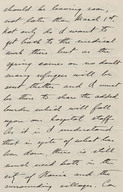 should be leaving soon,
not later than March 1st.
Not only do I want to
get back to the medical
work there but as the
spring comes on no doubt
many refugees will be
sent thither and I must
be there to share the added
burden which will fall
upon our hospital staff.
As it is I understand
that in spite of what has
been done there is still
much need both in the
city of Harris and the
surrounding villages.